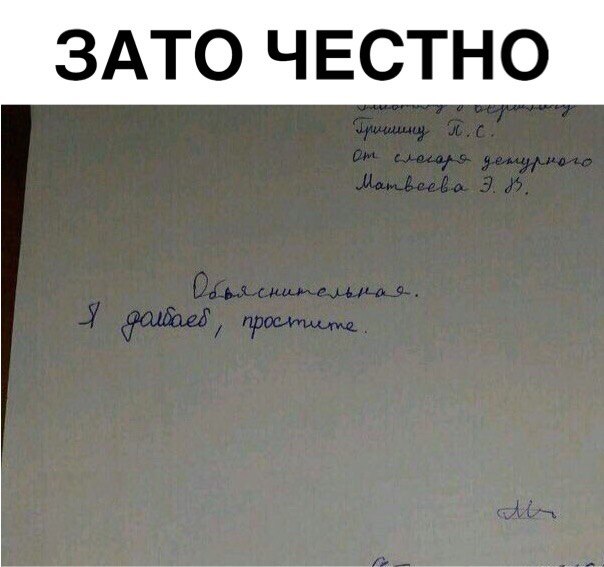 ЗАТО ЧЕСТНО
Гришину П.С.
От слесаря дежурного
Матвеева Э.В.
Объяснительная.
Я долбаеб, простите.